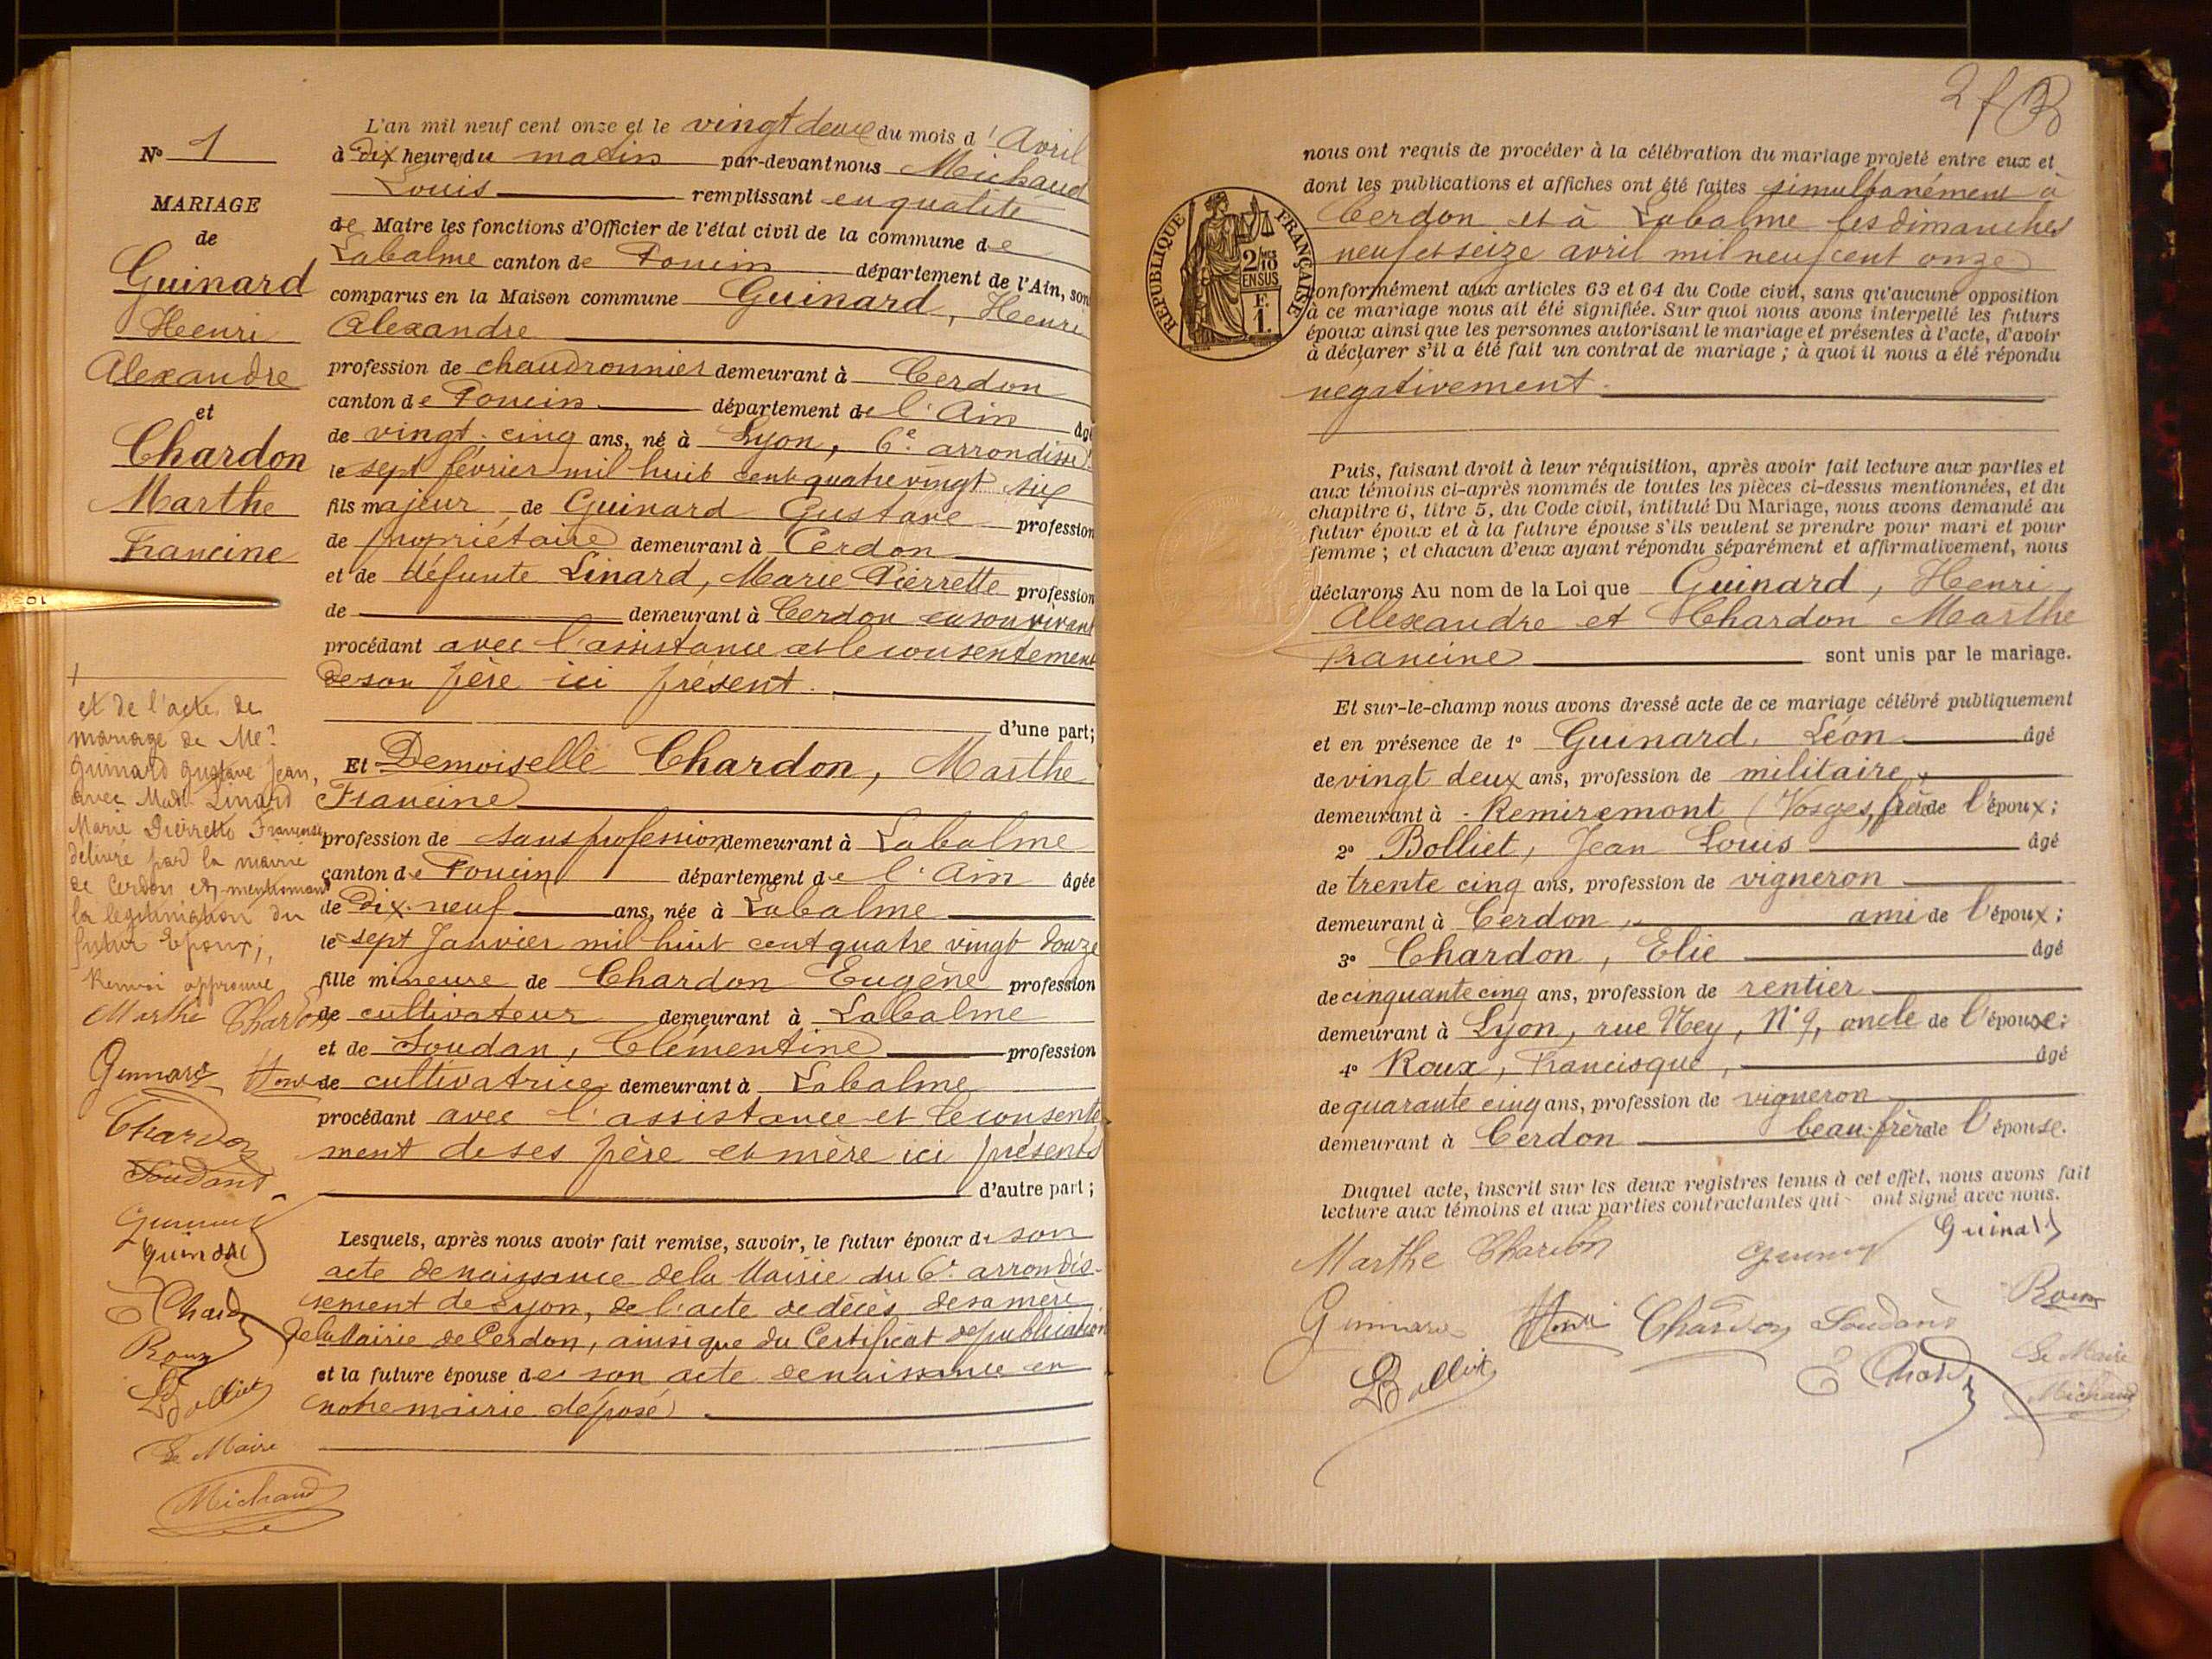 N° 1
MARIAGE
de
Guinard
Henri
Alexandre
et
Chardon
Marthe
Francine
et de l'acte de
mariage de Mr
Guinard Gustave Jean,
avec Made Linard
Marie Pierrette Françoise
délivré par la mairie
de Cerdon et mentionnant
la légitimation du
futur Epoux;
Renvoi approuvé
Marthe Chardon
Guinard Henri
Chardon
Soudant
Guinard
Guinard
E Chardon
Roux
Bolliet
Le Maire
Michaud
L'an mil neuf cent onze et le vingt deux du mois d'Avril
à Dix heures du matin par-devant nous Michaud
Louis remplissant en qualité
de Maire les fonctions d'Officier de l'état civil de la commune de
Labalme canton de Poncin département de l'Ain, sont
comparus en la Maison commune Guinard, Henri
Alexandre
profession de chaudronnier demeurant à Cerdon
canton de Poncin département de l'Ain âgé
de vingt-cinq ans, né à Lyon, 6e arrondisst
le sept février mil huit cent quatre vingt six
fils majeur de Guinard Gustave profession
de propriétaire demeurant à Cerdon
et de défunte Linard, Marie Pierrette profession
de demeurant à Cerdon en son vivant
procédant avec l'assistance et le consentement
de son père ici présent.
d'une part;
Et Demoiselle Chardon, Marthe
Francine
profession de sans profession demeurant à Labalme
canton de Poncin département de l'Ain âgée
de Dix-neuf ans, née à Labalme
le sept Janvier mil huit cent quatre vingt douze
fille mineure de Chardon Eugène profession
de cultivateur demeurant à Labalme
et de Soudan, Clémentine profession
de cultivatrice demeurant à Labalme
procédant avec l'assistance et le consente
ment de ses père et mère ici présents
d'autre part;
Lesquels, après nous avoir fait remise, savoir, le futur époux de son
acte de naissance de la Mairie du 6e arrondis-
sement de Lyon, de l'acte de décès de sa mère
de la Mairie de Cerdon, ainsi que du Certificat de publication
et la future épouse de son acte de naissance en
notre mairie déposé.
2f
nous ont requis de procéder à la célébration du mariage projeté entre eux et
dont les publications et affiches ont été faites simultanément à
Cerdon et à Labalme les dimanches
neuf et seize avril mil neuf cent onze
RÉPUBLIQUE FRANÇAISE
2/10 MES
EN SUS
F.
1.
conformément aux articles 63 et 64 du Code civil, sans qu'aucune opposition
à ce mariage nous ait été signifiée. Sur quoi nous avons interpellé les futurs
époux ainsi que les personnes autorisant le mariage et présentes à l'acte, d'avoir
à déclarer s'il a été fait un contrat de mariage; à quoi il nous a été répondu
négativement.
Puis, faisant droit à leur réquisition, après avoir fait lecture aux parties et
aux témoins ci-après nommés de toutes les pièces ci-dessus mentionnées, et du
chapitre 6, titre 5, du Code civil, intitulé Du Mariage, nous avons demandé au
futur époux et à la future épouse s'ils veulent se prendre pour mari et pour
femme; et chacun d'eux ayant répondu séparément et affirmativement, nous
déclarons Au nom de la Loi que Guinard, Henri
Alexandre et Chardon Marthe
Francine sont unis par le mariage.
Et sur-le-champ nous avons dressé acte de ce mariage célébré publiquement
et en présence de 1° Guinard, Léon âgé
de vingt deux ans, profession de militaire,
demeurant à Remiremont (Vosges, frère de l'époux;
2° Bolliet, Jean Louis âgé
de trente cinq ans, profession de vigneron
demeurant à Cerdon, ami de l'époux;
3° Chardon, Elie âgé
de cinquante cinq ans, profession de rentier
demeurant à Lyon, rue Ney, N° 9, oncle de l'épouse;
4° Roux, Francisque, âgé
de quarante cinq ans, profession de vigneron
demeurant à Cerdon beau-frère de l'épouse.
Duquel acte, inscrit sur les deux registres tenus à cet effet, nous avons fait
lecture aux témoins et aux parties contractantes qui ont signé avec nous.
Marthe Chardon Guinard Guinard
Guinard Henri Chardon Soudant Roux
Bolliet E Chardon Le Maire
Michaud